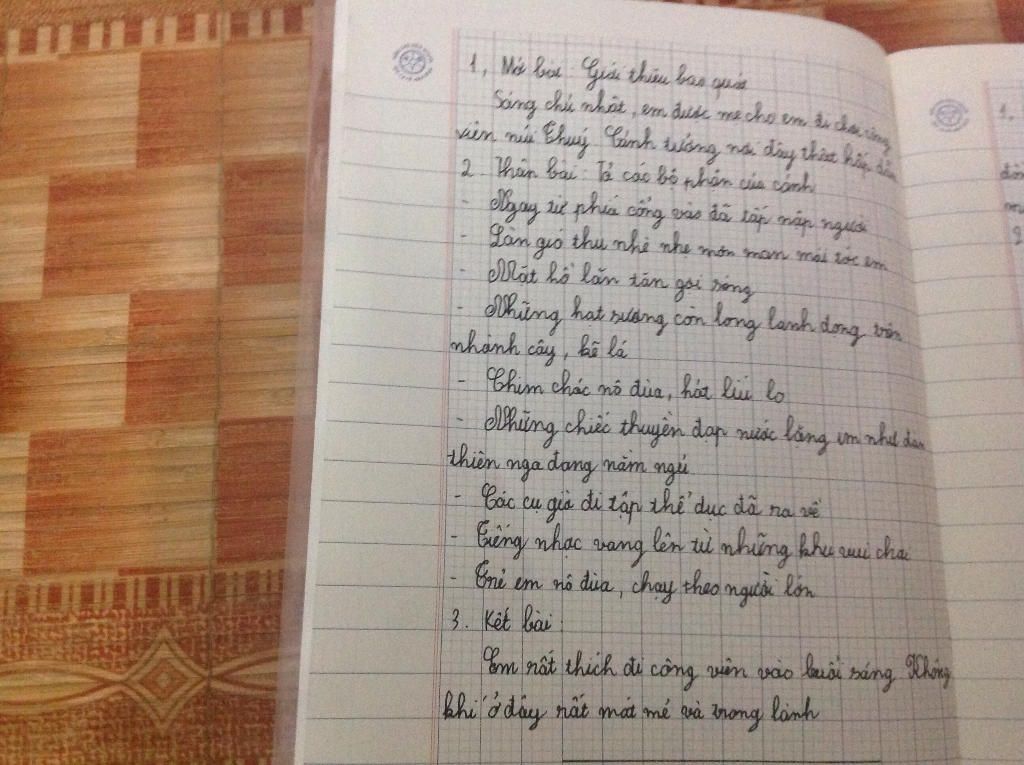 1, Mở bài: Giới thiệu bao quát
Sáng chủ nhật, em được mẹ cho em đi chơi công
viên núi Thuý. Cảnh tượng nơi đây thật hấp dẫn
2. Thân bài: Tả các bộ phận của cảnh
- Ngay từ phía cổng vào đã tấp nập người
- Làn gió thu nhè nhẹ mơn man mái tóc em
- Mặt hồ lăn tăn gợi sóng
- Những hạt sương còn long lanh đọng trên
nhành cây, kẽ lá
- Chim chóc nô đùa, hót líu lo
- Những chiếc thuyền đạp nước lặng im như đàn
thiên nga đang nằm ngủ
- Các cụ già đi tập thể dục đã ra về
- Tiếng nhạc vang lên từ những khu vui chơi
- Trẻ em nô đùa, chạy theo người lớn
3. Kết bài:
Em rất thích đi công viên vào buổi sáng. Không
khí ở đây rất mát mẻ và trong lành
1,